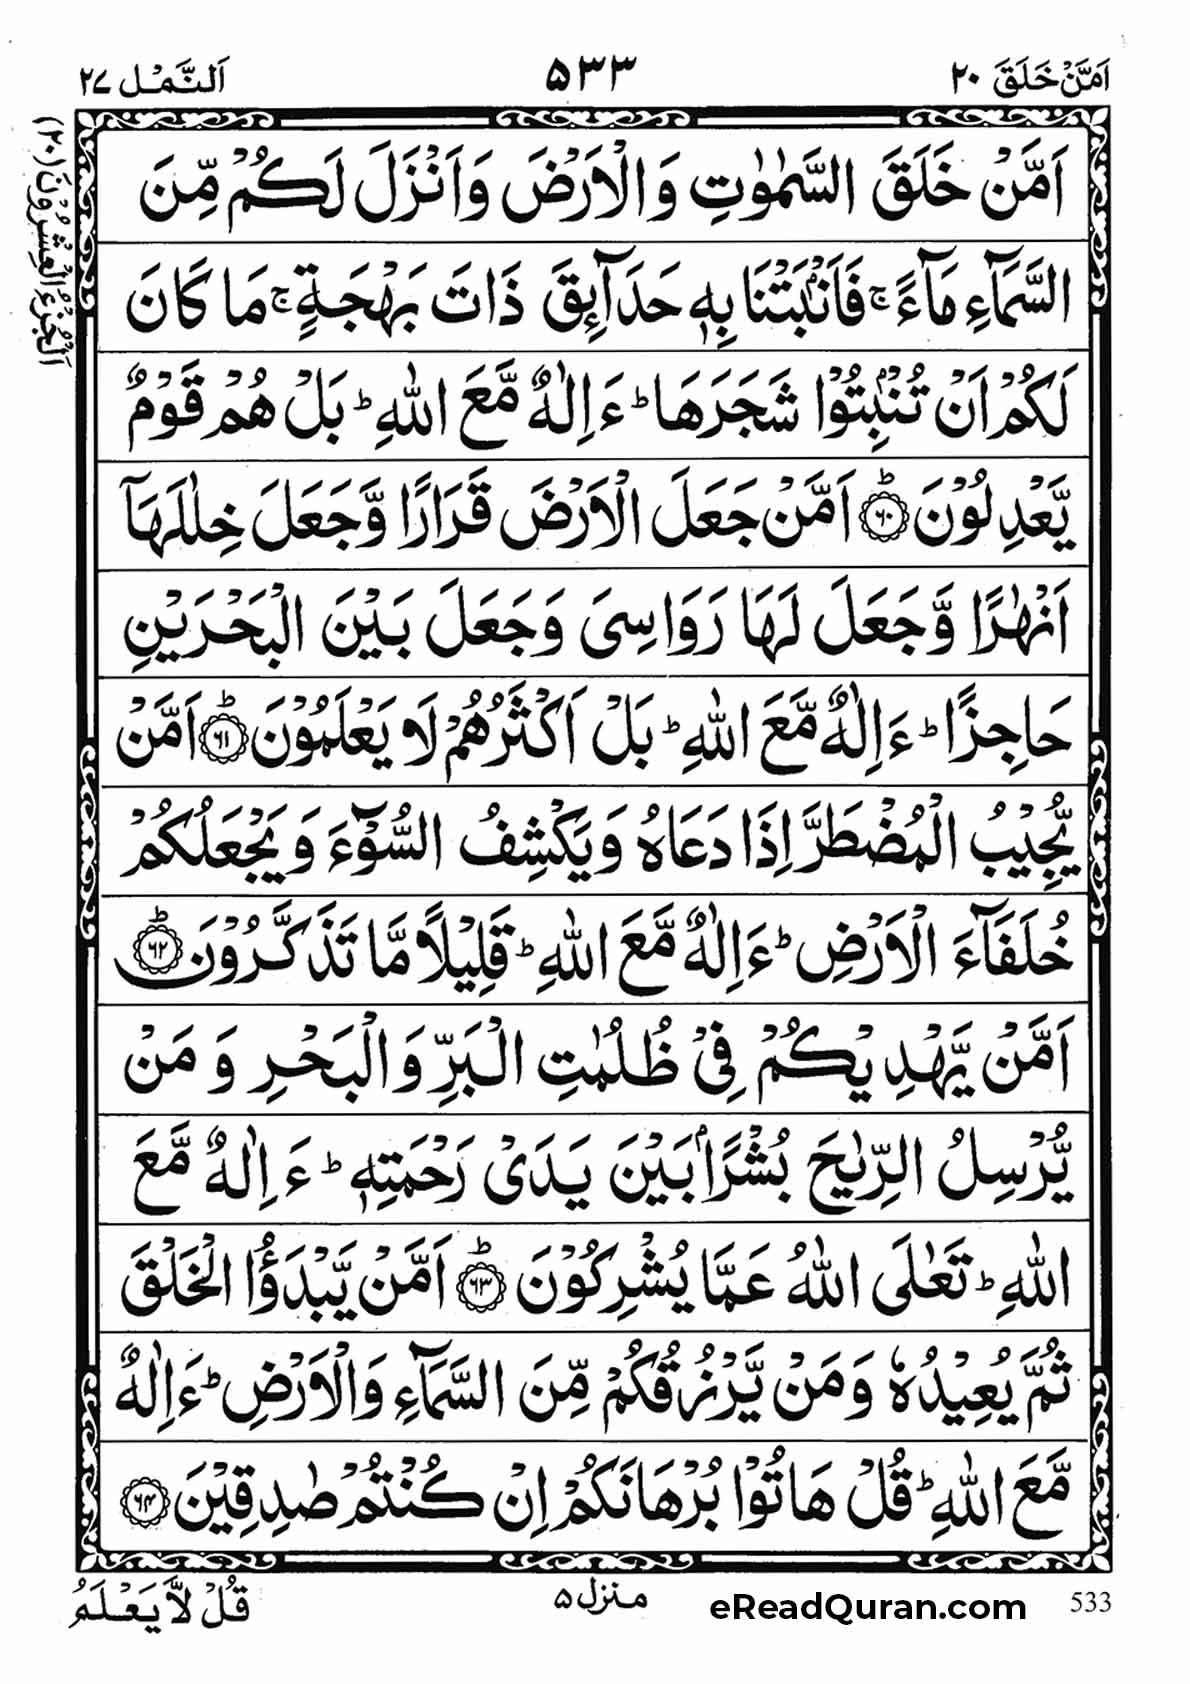 اَمَّنْ خَلَقَ ٢٠
٥٣٣
اَلنَّمْل ٢٧
اَلْجُزْءُ الْعِشْرُوْنَ (٢٠)
اَمَّنْ خَلَقَ السَّمٰوٰتِ وَالْاَرْضَ وَاَنْزَلَ لَكُمْ مِّنَ
السَّمَآءِ مَآءً ۚ فَاَنْۢبَتْنَا بِهٖ حَدَآئِقَ ذَاتَ بَهْجَةٍ ۚ مَا كَانَ
لَكُمْ اَنْ تُنْۢبِتُوْا شَجَرَهَا ؕ ءَاِلٰهٌ مَّعَ اللّٰهِ ؕ بَلْ هُمْ قَوْمٌ
يَّعْدِلُوْنَ ؕ ﴿٦٠﴾ اَمَّنْ جَعَلَ الْاَرْضَ قَرَارًا وَّجَعَلَ خِلٰلَهَاۤ
اَنْهٰرًا وَّجَعَلَ لَهَا رَوَاسِىَ وَجَعَلَ بَيْنَ الْبَحْرَيْنِ
حَاجِزًا ؕ ءَاِلٰهٌ مَّعَ اللّٰهِ ؕ بَلْ اَكْثَرُهُمْ لَا يَعْلَمُوْنَ ؕ ﴿٦١﴾ اَمَّنْ
يُّجِيْبُ الْمُضْطَرَّ اِذَا دَعَاهُ وَيَكْشِفُ السُّوْٓءَ وَيَجْعَلُكُمْ
خُلَفَآءَ الْاَرْضِ ؕ ءَاِلٰهٌ مَّعَ اللّٰهِ ؕ قَلِيْلًا مَّا تَذَكَّرُوْنَ ؕ ﴿٦٢﴾
اَمَّنْ يَّهْدِيْكُمْ فِىْ ظُلُمٰتِ الْبَرِّ وَالْبَحْرِ وَمَنْ
يُّرْسِلُ الرِّيٰحَ بُشْرًاۢ بَيْنَ يَدَىْ رَحْمَتِهٖ ؕ ءَاِلٰهٌ مَّعَ
اللّٰهِ ؕ تَعٰلَى اللّٰهُ عَمَّا يُشْرِكُوْنَ ؕ ﴿٦٣﴾ اَمَّنْ يَّبْدَؤُا الْخَلْقَ
ثُمَّ يُعِيْدُهٗ وَمَنْ يَّرْزُقُكُمْ مِّنَ السَّمَآءِ وَالْاَرْضِ ؕ ءَاِلٰهٌ
مَّعَ اللّٰهِ ؕ قُلْ هَاتُوْا بُرْهَانَكُمْ اِنْ كُنْتُمْ صٰدِقِيْنَ ﴿٦٤﴾
قُلْ لَّا يَعْلَمُ
منزل ٥
eReadQuran.com
533